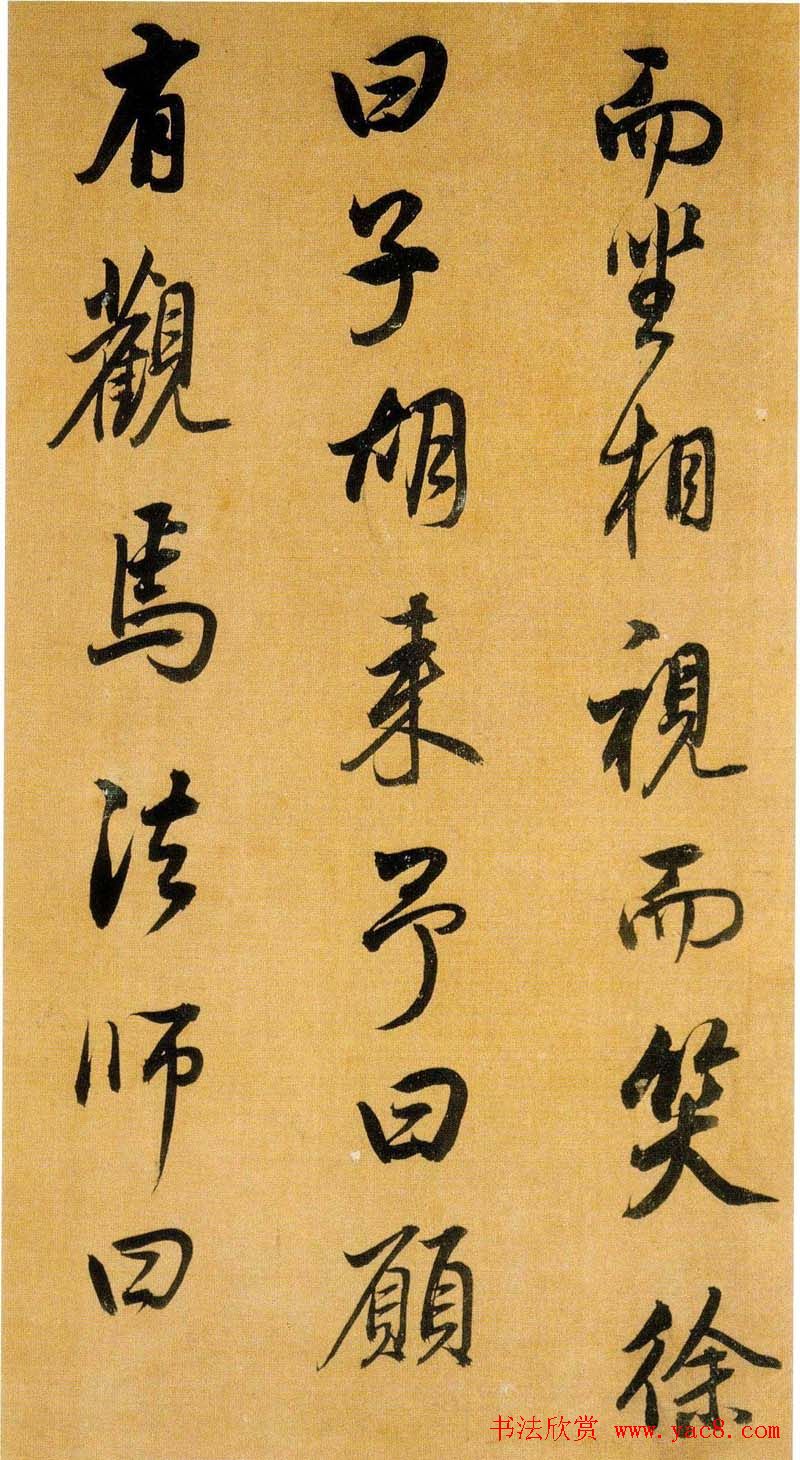 而坐相視而笑徐
曰子胡来予曰願
有觀焉法师曰
书法欣赏 www.yac8.com